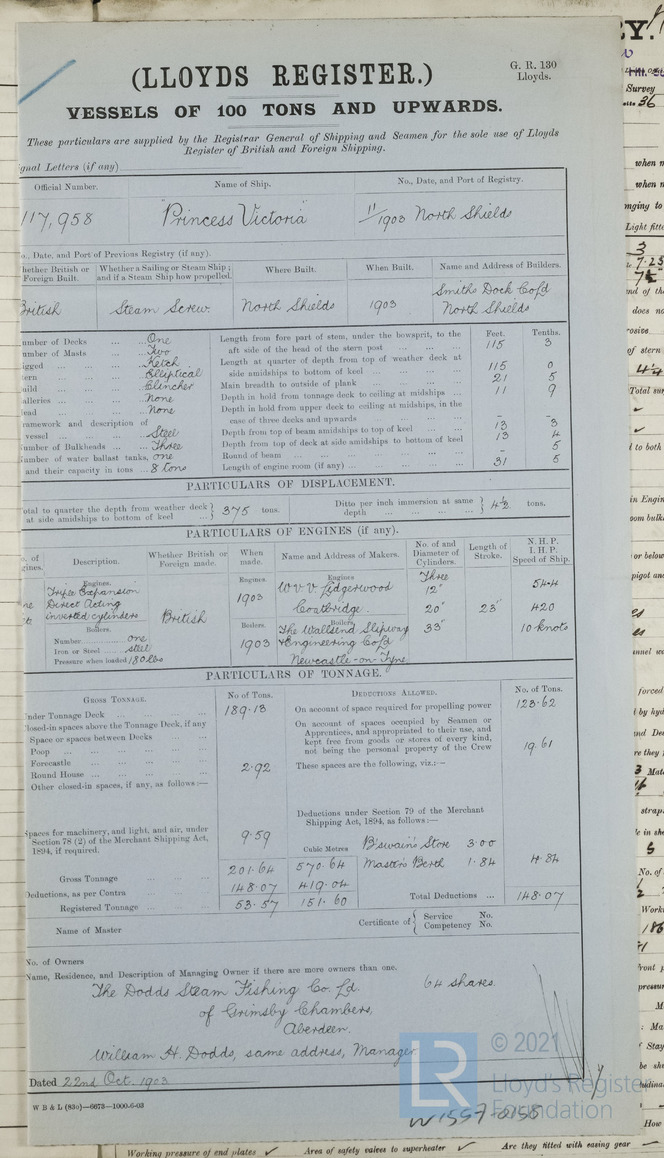 G. R. 130
Lloyds.
(LLOYDS REGISTER.)
VESSELS OF 100 TONS AND UPWARDS.
These particulars are supplied by the Registrar General of Shipping and Seamen for the sole use of Lloyds
Register of British and Foreign Shipping.
gnal Letters (if any)
Official Number. Name of Ship. No., Date, and Port of Registry.
117,958 "Princess Victoria" 11/1903 North Shields
o., Date, and Port of Previous Registry (if any).
hether British or Foreign Built. Whether a Sailing or Steam Ship; and if a Steam Ship how propelled. Where Built. When Built. Name and Address of Builders.
British Steam Screw. North Shields 1903 Smiths Dock Co Ld North Shields
umber of Decks ... ... One
umber of Masts ... ... Two
igged ... ... Ketch
tern ... ... Elliptical
uild ... ... Clincher
alleries ... ... None
ead ... ... None
ramework and description of
vessel ... ... Steel
umber of Bulkheads ... Three
umber of water ballast tanks, one
and their capacity in tons ... 8 tons
Feet. Tenths.
Length from fore part of stem, under the bowsprit, to the
aft side of the head of the stern post ... 115 3
Length at quarter of depth from top of weather deck at
side amidships to bottom of keel ... 115 0
Main breadth to outside of plank ... 21 5
Depth in hold from tonnage deck to ceiling at midships ... 11 9
Depth in hold from upper deck to ceiling at midships, in the
case of three decks and upwards ... - -
Depth from top of beam amidships to top of keel ... 13 3
Depth from top of deck at side amidships to bottom of keel 13 4
Round of beam ... - 5
Length of engine room (if any) ... 31 5
PARTICULARS OF DISPLACEMENT.
otal to quarter the depth from weather deck at side amidships to bottom of keel ... 375 tons. Ditto per inch immersion at same depth ... 4½ tons.
PARTICULARS OF ENGINES (if any).
o. of gines. Description. Whether British or Foreign made. When made. Name and Address of Makers. No. of and Diameter of Cylinders. Length of Stroke. N.H.P. I.H.P. Speed of Ship.
Engines. Engines. Engines Three
Triple Expansion 1903 W & V Lidgerwood 12" 54.4
Direct Acting Coatbridge. 20" 23" 420
inverted cylinders British
Boilers. Boilers. Boilers. 33" 10 knots
Number ... one 1903 The Wallsend Slipway
Iron or Steel ... steel & Engineering Co Ld
Pressure when loaded 180 lbs Newcastle-on-Tyne
PARTICULARS OF TONNAGE.
GROSS TONNAGE. No of Tons. DEDUCTIONS ALLOWED. No. of Tons.
Under Tonnage Deck ... 189.13 On account of space required for propelling power 123.62
losed-in spaces above the Tonnage Deck, if any
Space or spaces between Decks ...
Poop ...
Forecastle ... 2.92
Round House ...
Other closed-in spaces, if any, as follows :—
On account of spaces occupied by Seamen or
Apprentices, and appropriated to their use, and
kept free from goods or stores of every kind,
not being the personal property of the Crew 19.61
These spaces are the following, viz.:—
Deductions under Section 79 of the Merchant
Shipping Act, 1894, as follows :—
paces for machinery, and light, and air, under
Section 78 (2) of the Merchant Shipping Act,
1894, if required. 9.59
Cubic Metres B'swain's Store 3.00
Gross Tonnage ... 201.64 570.64 Master's Berth 1.84 4.84
Deductions, as per Contra ... 148.07 419.04 Total Deductions ... 148.07
Registered Tonnage ... 53.57 151.60
Name of Master Certificate of Service No. Competency No.
No. of Owners
Name, Residence, and Description of Managing Owner if there are more owners than one.
The Dodds Steam Fishing Co. Ld. 64 shares.
of Grimsby Chambers,
Aberdeen.
William H. Dodds, same address, Manager.
Dated 22nd Oct. 1903
W B & L (830)—6673—1000-6-03
LR © 2021
Lloyd's Register
Foundation
W1557-0158
Working pressure of end plates ✓ Area of safety valves to superheater ✓ Are they fitted with easing gear ✓